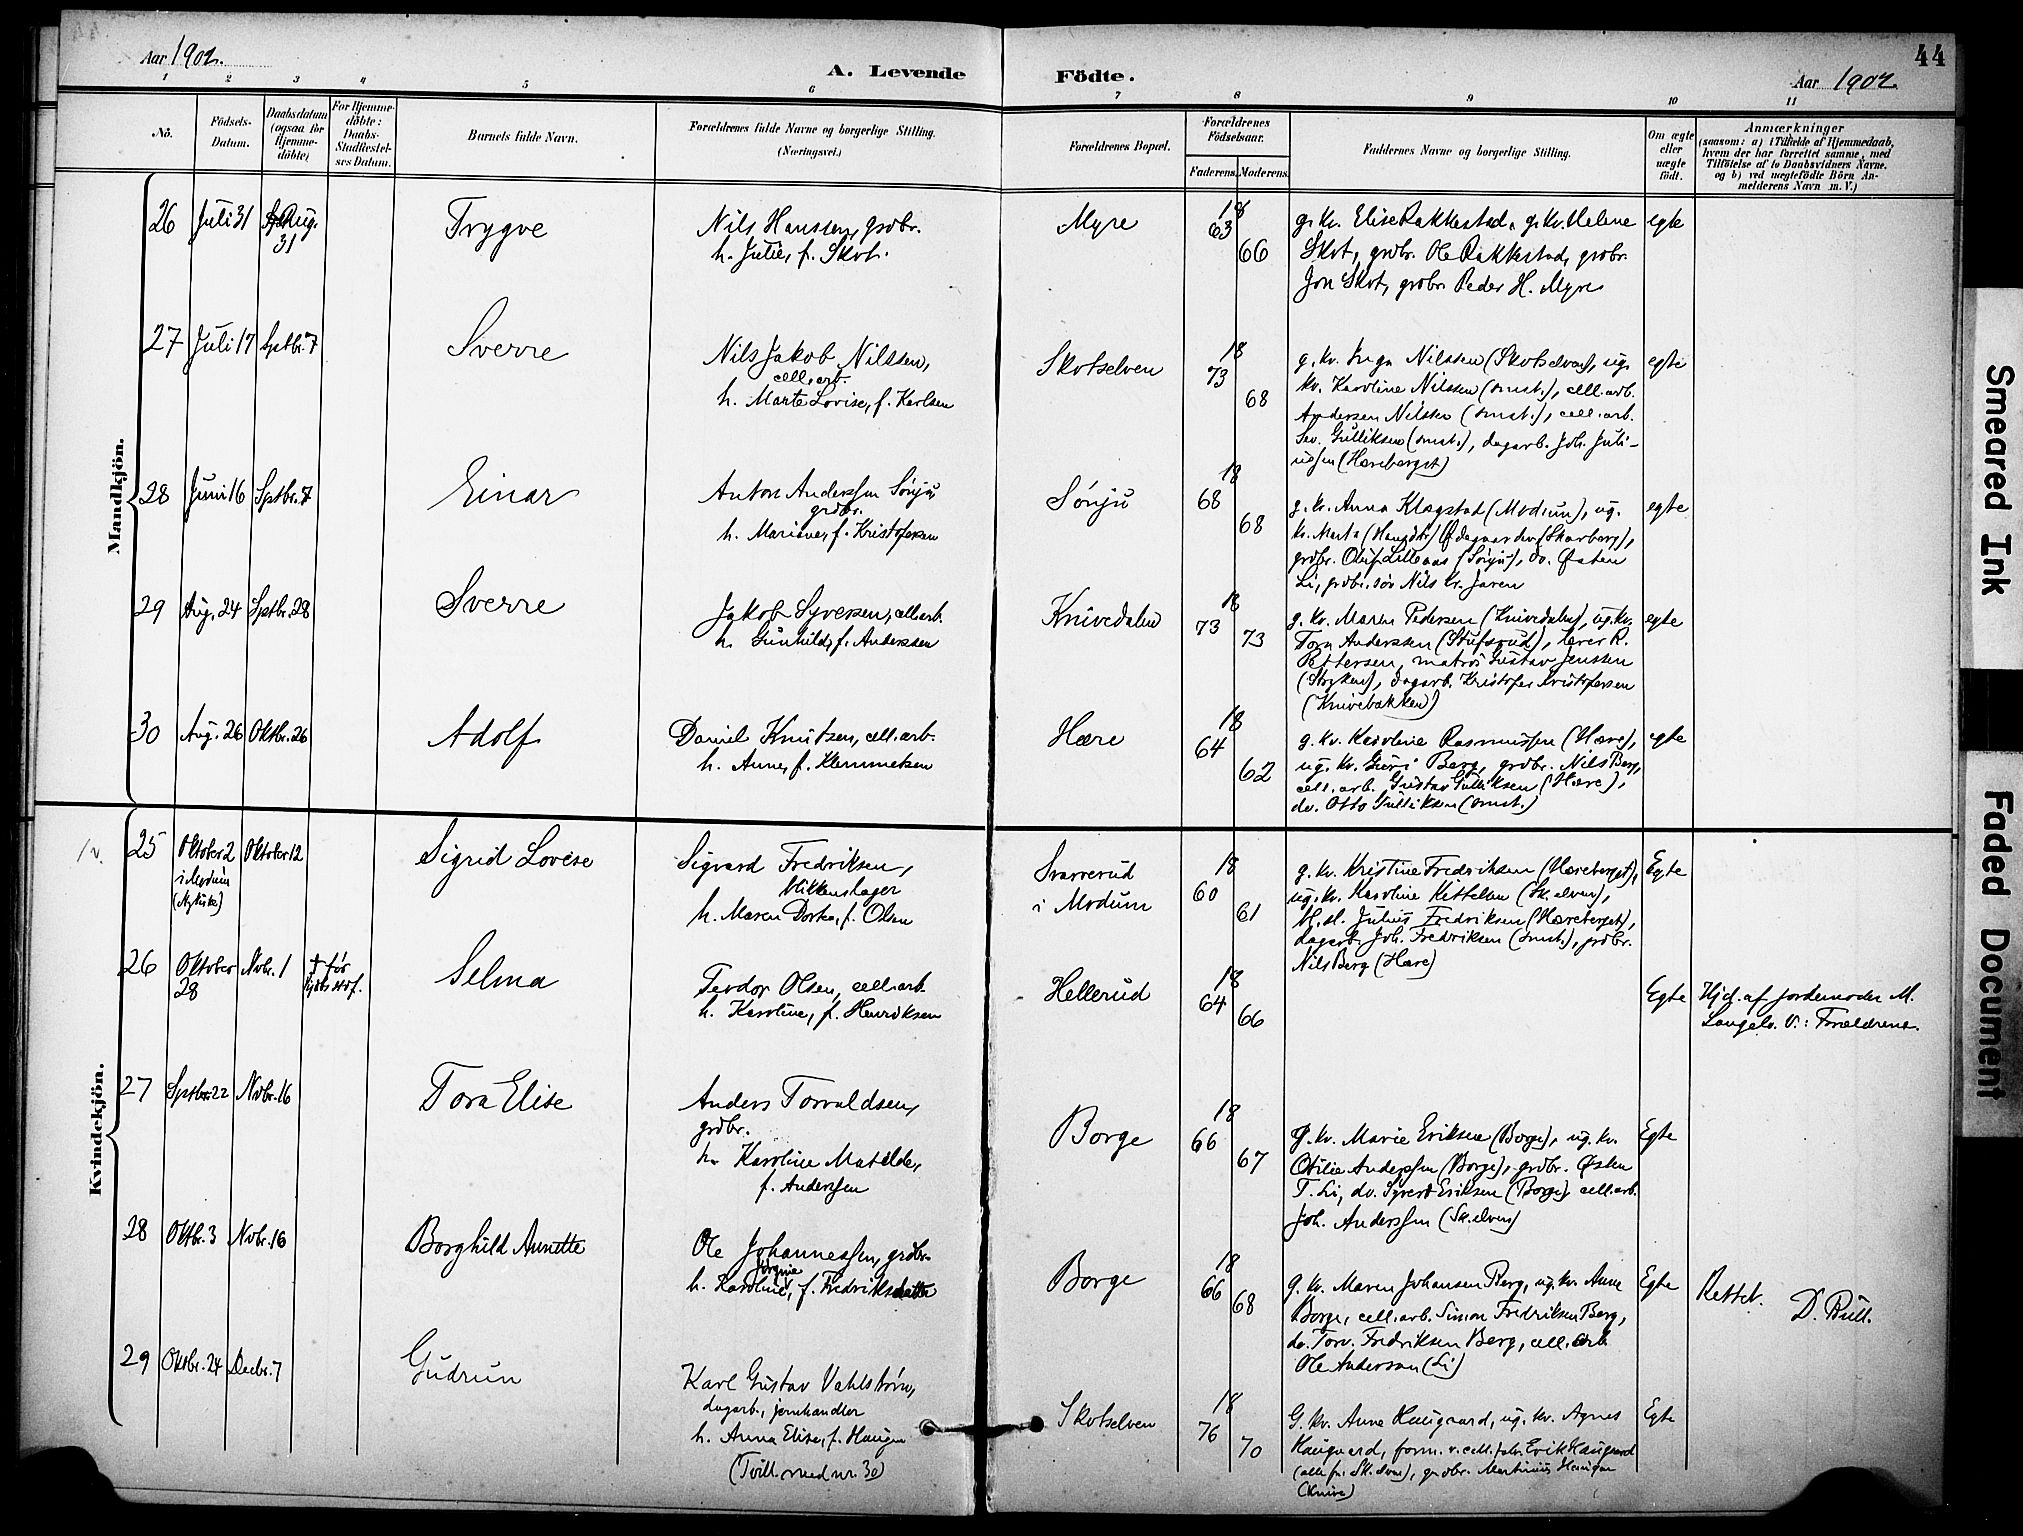 Aar 1902.
A. Levende
Födte.
Aar 1902.
44
1 2 3 4 5 6 7 8 9 10 11
No.
Födsels-Datum.
Daabsdatum (ogsaa for Hjemme-döbte)
For Hjemme-döbte: Daabs-Stadfæstel-ses Datum.
Barnets fulde Navn.
Forældrenes fulde Navne og borgerlige Stilling.
(Næringsvei.)
Forældrenes Bopæl.
Forældrenes Födselsaar.
Faderens. Moderens.
Faddernes Navne og borgerlige Stilling.
Om ægte eller uægte födt.
Anmærkninger
(saasom: a) i Tilfælde af Hjemmedaab,
hvem der har forrettet samme, med
Tilföielse af to Daabsvidners Navne.
og b) ved uægtefödte Börn An-
melderens Navn m. V.)
Mandkjön.
26 Juli 31 Aug. 31 Trygve
Nils Hanssen, grdbr.
h. Julie, f. Skot.
Myre
18 63 66
g. kv. Elise Rakkestad, g. kv. Helene
Skot, grdbr. Ole Rakkestad, grdbr.
Jon Skot, grdbr. Peder H. Myre
egte
27 Juli 17 Sptbr. 7 Sverre
Nils Jakob Nilssen,
cell. arb.
h. Marte Lovise, f. Karlsen
Skotselven
18 73 68
g. kv. Inga Nilssen (Skotselven), ug.
kv. Karoline Nilssen (smst.), cell. arb.
Andersen Nilssen (smst.), cell. arb.
Sev. Gulliksen (smst.), dagarb. Joh. Juli-
ussen (Hæreberget)
egte
28 Juni 16 Sptbr. 7 Einar
Anton Anderssen Sönju,
grdbr.
h. Mariane, f. Kristofersen
Sönju
18 68 68
g. kv. Anna Klagstad (Modum), ug.
kv. Marta (Skarberg),
grdbr. Lillaas (Sönju), do. Østen
Li, grdbr. sön Nils Kr. Jaren
egte
29 Aug. 24 Sptbr. 28 Sverre
Jakob Syversen, cell. arb.
h. Gunhild, f. Anderssen
Knivedalen
18 73 73
g. kv. Maren Pedersen (Knivedalen), ug. kv.
Tora Anderssen (Stufsrud), lærer R.
Pettersen, matros Gustav Jenssen
(Stryken), dagarb. Kristofer Kristofersen
(Knivebakken)
egte
30 Aug. 26 Oktbr. 26 Adolf
Daniel Knutsen, cell. arb.
h. Anne, f. Klemmetsen
Hære
18 64 62
g. kv. Karoline Rasmussen (Hære),
ug. kv. Guri Berg, grdbr. Nils Berg,
cell. arb. Gustav Gulliksen (Hære),
do. Otto Gulliksen (smst.)
egte
Kvindekjön.
1 v. 25 Oktober 2 i Modum (Nykirke) Oktober 12 Sigrid Lovise
Sigvard Fredriksen,
blikkenslager
h. Maren Dortea, f. Olsen
Svarverud
i Modum
18 60 61
g. kv. Kristine Fredriksen (Hæreberget),
ug. kv. Karoline Kittelsen (Sk. elven),
bl. sl. Julius Fredriksen (Hæreberget),
dagarb. Joh. Fredriksen (smst.), grdbr.
Nils Berg (Hære)
Egte
26 Oktober 28 Novbr. 1 † før
Selma
Teodor Olsen, cell. arb.
h. Karoline, f. Henriksen
Hellerud
18 64 66
Egte
Hjd. af Jordemoder M.
V.: Forældrene.
27 Sptbr. 22 Novbr. 16 Tora Elise
Anders Torvaldsen,
grdbr.
h. Karoline Matilde,
f. Anderssen
Borge
18 66 67
g. kv. Marie Eriksen (Borge), ug. kv.
Otilie Anderssen (Borge), grdbr. Østen
T. Li, do. Syvert Eriksen (Borge), cell. arb.
Joh. Anderssen (Sk. elven)
Egte
28 Oktbr. 3 Novbr. 16 Borghild Annette
Ole Johannessen, grdbr.
Jörgine
h. Karoline, f. Fredriksdatter
Borge
18 66 68
g. kv. Maren Johansen Berg, ug. kv. Anne
Borge, cell. arb. Simon Fredriksen Berg,
do. Torv. Fredriksen Berg, cell. arb.
Ole Andersen (Li)
Egte
Rettet. D. Bull.
29 Oktbr. 24 Decbr. 7 Gudrun
Karl Gustav Vahlström,
dagarb., jernhandler
h. Anna Elise, f. Haugen
(Tvill. med nr. 30)
Skotselven
18 76 70
G. kv. Anne Haugaard, ug. kv. Agnes
Haugaard, form. v. cell. fabr. Erik Haugaard
(alle fra Sk. elven), grdbr. Martinius Haugan
(Knive)
Egte
Smeared Ink
Faded Document